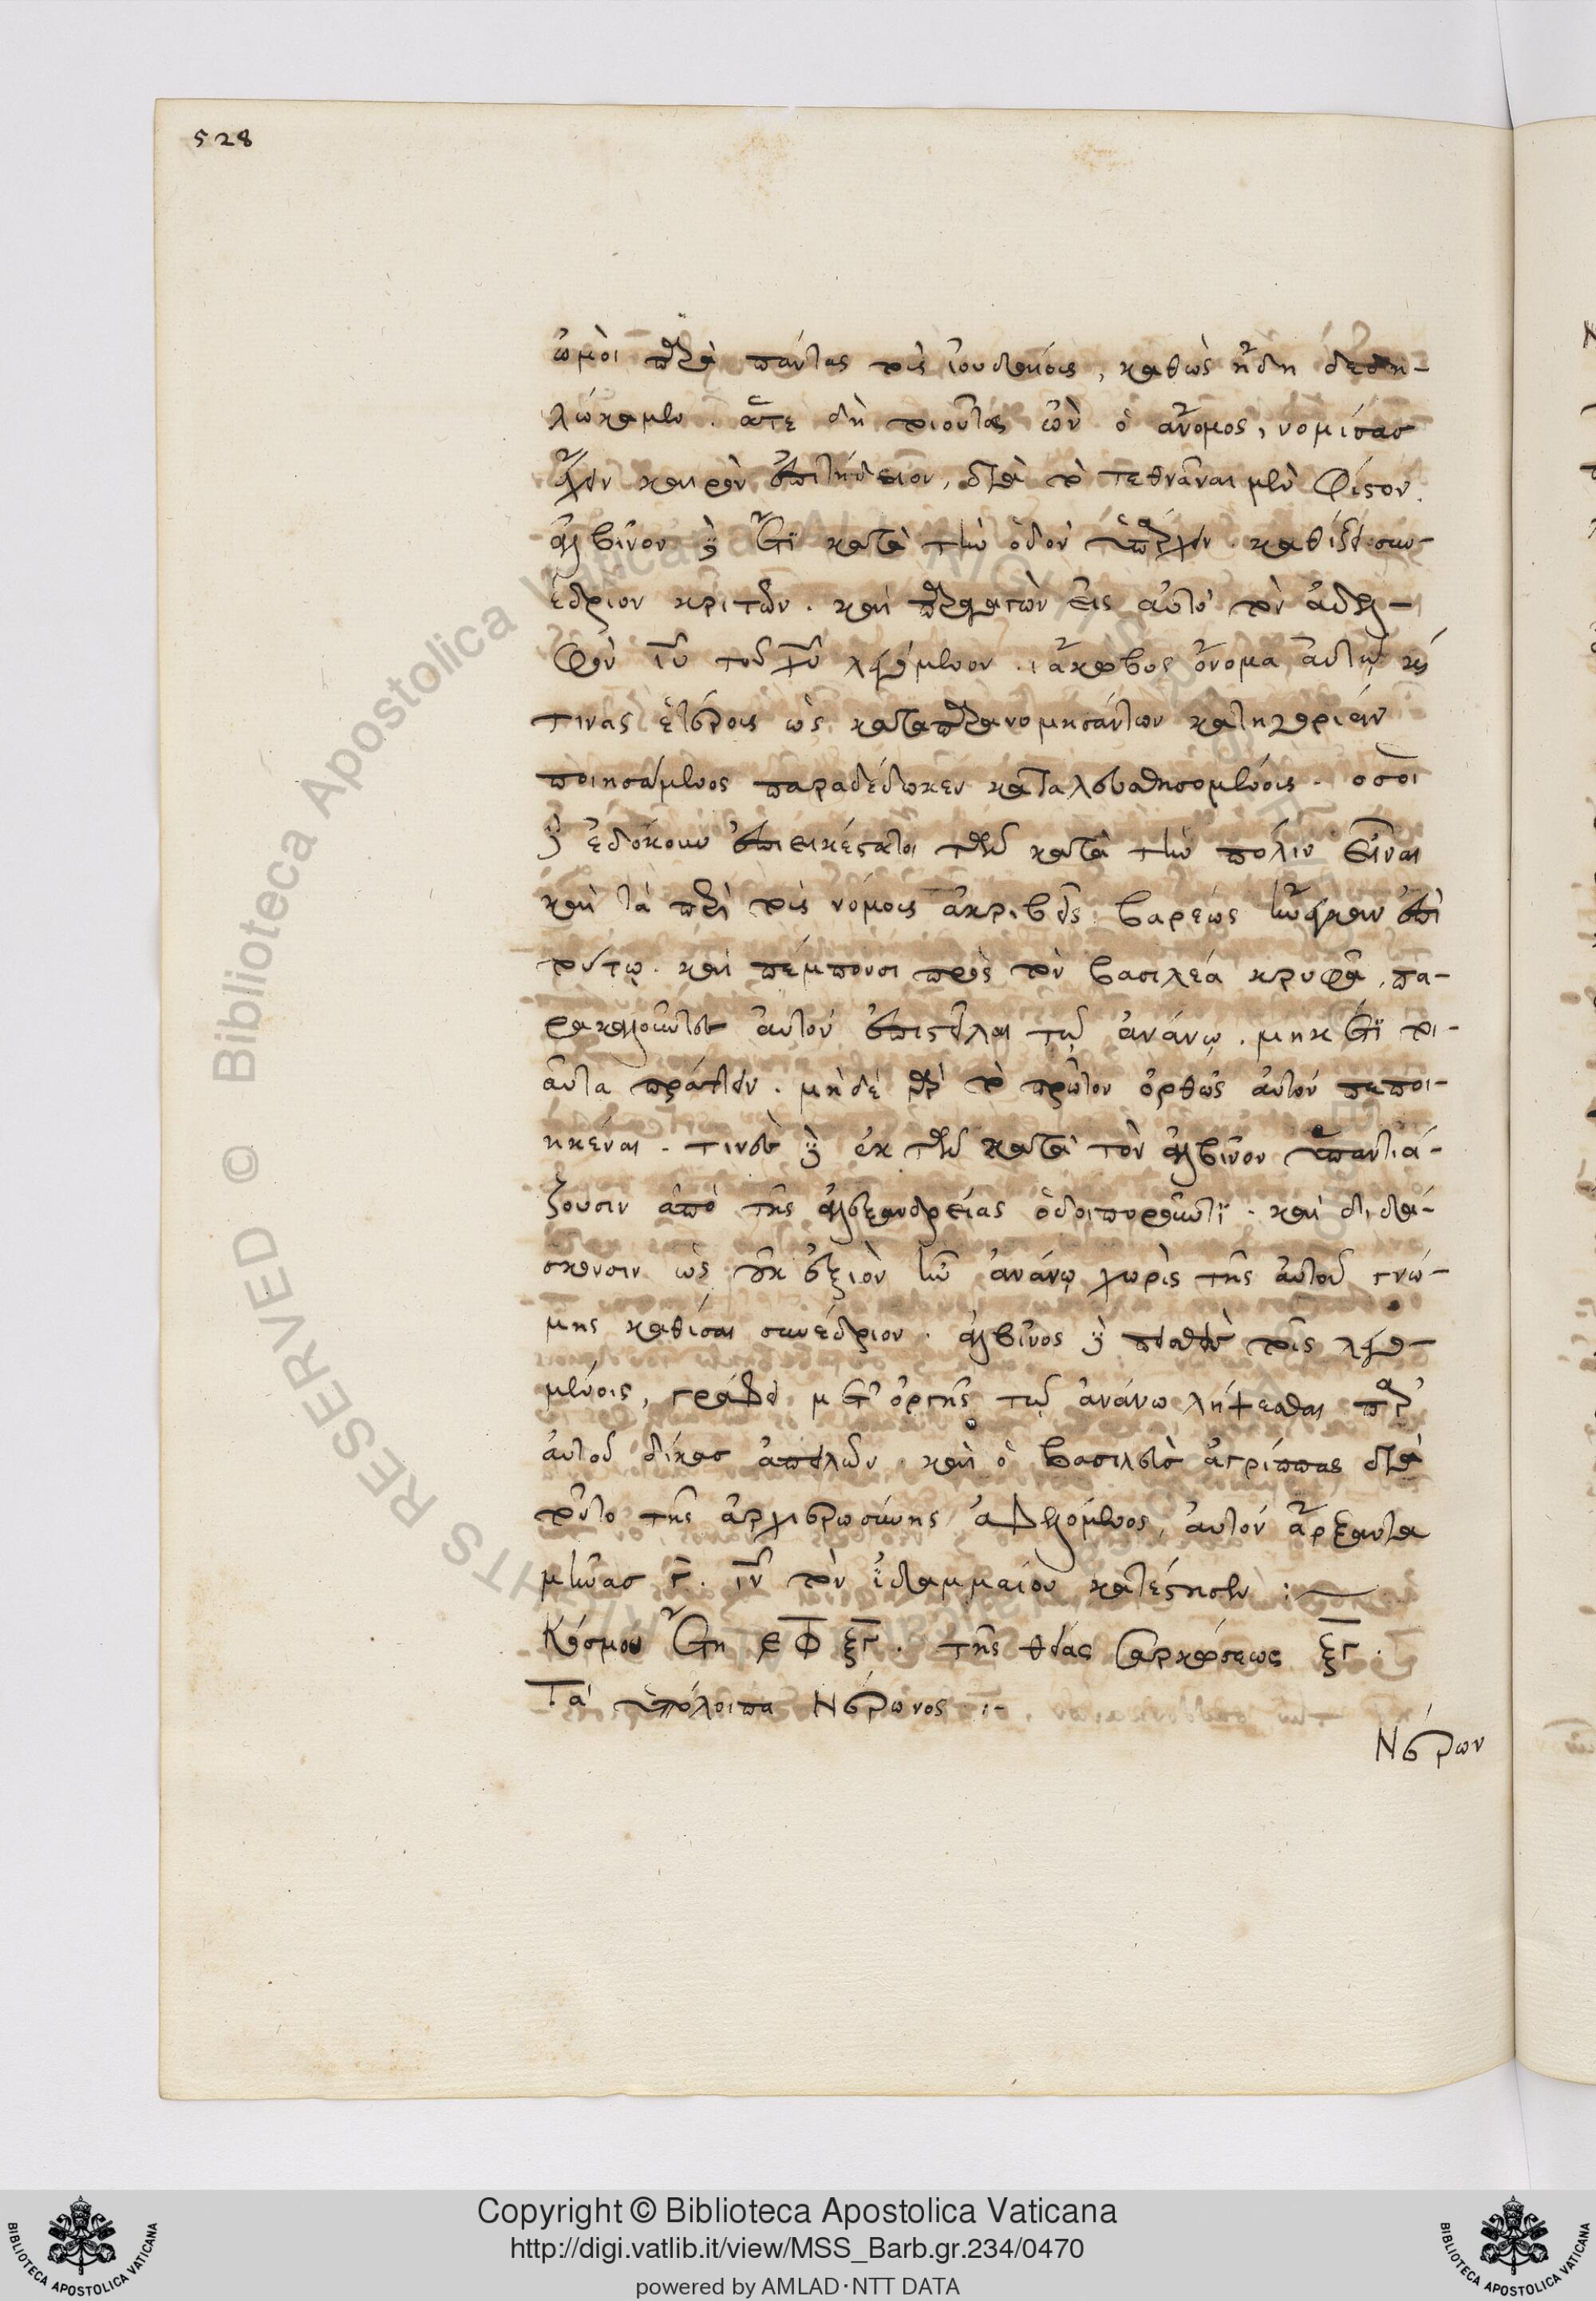 528
ὠμοὶ παρὰ πάντας τοὺς ἰουδαίους, καθὼς ἤδη δεδη-
λώκαμεν. ἅτε δὴ τοιοῦτος ὢν ὁ ἄνομος, νομίσας
ἔχειν καιρὸν ἐπιτήδειον, διὰ τὸ τεθνᾶναι μὲν Φίστον.
ἀλβῖνον δὲ ἔτι κατὰ τὴν ὁδὸν ὑπάρχειν. καθίζει συν-
έδριον κριτῶν. καὶ παραγαγὼν εἰς αὐτὸ τὸν ἀδελ-
φὸν ιυ τοῦ χυ λεγόμενον. ἰάκωβος ὄνομα αὐτῷ καί
τινας ἑτέρους ὡς καταπαρανομησάντων κατηγορίαν
ποιησάμενος παραδέδωκεν καταλευσθησομένους. ὅσοι
δὲ ἐδόκουν ἐπιεικέστατοι τῶν κατὰ τὴν πόλιν εἶναι
καὶ τὰ περὶ τοὺς νόμους ἀκριβεῖς. βαρέως ἤνεγκαν ἐπὶ
τούτῳ. καὶ πέμπουσι πρὸς τὸν βασιλέα κρυφᾶ, πα-
ρακαλοῦντες αὐτὸν ἐπιστεῖλαι τῷ ἀνάνῳ. μηκέτι τοι-
αῦτα πράττειν. μηδὲ γὰρ τὸ πρῶτον ὀρθῶς αὐτὸν πεποι-
ηκέναι. τινὲς δὲ ἐκ τῶν κατὰ τὸν ἀλβῖνον ὑπαντιά-
ζουσιν ἀπὸ τῆς ἀλεξανδρείας ὁδοιποροῦντι. καὶ διδά-
σκουσιν ὡς οὐκ ἐξιὸν ἦν ἀνάνῳ χωρὶς τῆς αὐτοῦ γνώ-
μης καθίσαι συνέδριον. ἀλβῖνος δὲ πεισθεὶς τοῖς λεγο-
μένοις, γράφει μετ' ὀργῆς τῷ ἀνάνῳ λήψεσθαι παρ'
αὐτοῦ δίκας ἀπειλῶν. καὶ ὁ βασιλεὺς ἀγρίππας διὰ
τοῦτο τῆς ἀρχιερωσύνης ἀφελόμενος, αὐτὸν ἄρξαντα
μῆνας γ. ιν τὸν ἰδαμμαίου κατέστησεν :—
Κόσμου ἔτη εφξγ. τῆς θείας σαρκώσεως ξγ.
Τὰ ὑπόλοιπα Νέρωνος :-
Νέρων
Biblioteca Apostolica Vaticana
Copyright © Biblioteca Apostolica Vaticana
http://digi.vatlib.it/view/MSS_Barb.gr.234/0470
powered by AMLAD·NTT DATA
BIBLIOTECA APOSTOLICA VATICANA
BIBLIOTECA APOSTOLICA VATICANA